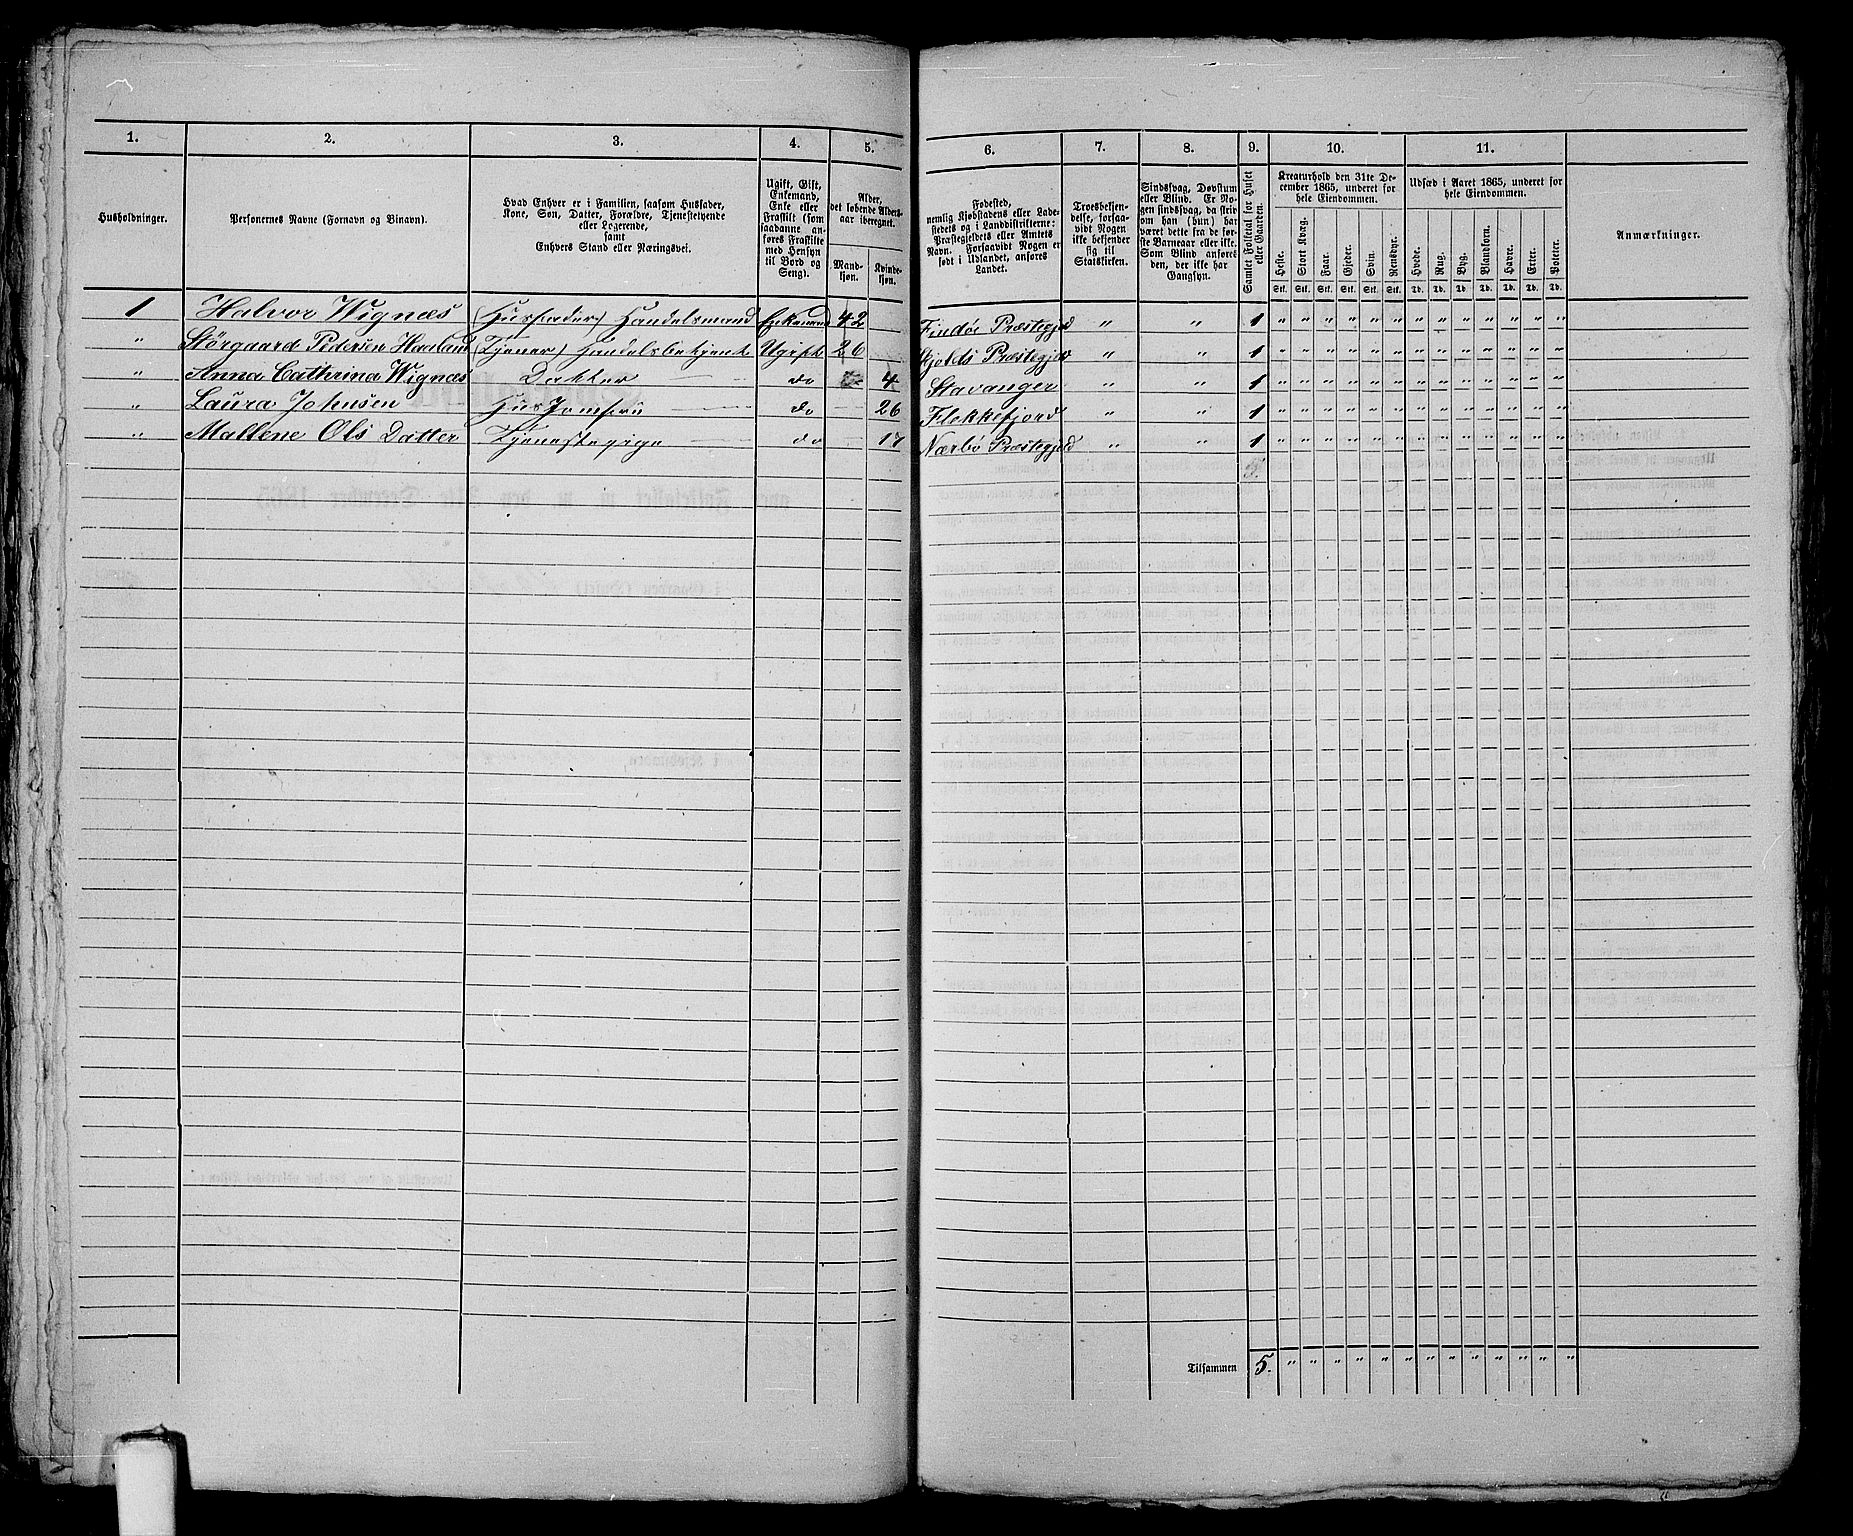 1. 2. 3. 4. 5. 6. 7. 8. 9. 10. 11.
Husholdninger.
Personernes Navne (Fornavn og Binavn).
Hvad Enhver er i Familien, saasom Husfader,
Kone, Søn, Datter, Forældre, Tjenestetyende
eller Logerende,
samt
Enhvers Stand eller Næringsvei.
Ugift, Gift,
Enkemand,
Enke eller
Fraskilt (som
saadanne an-
føres Fraskilte
med Hensyn
til Bord og
Seng).
Alder,
det løbende Alders-
aar iberegnet.
Mand-
kjøn.
Kvinde-
kjøn.
Fødested,
nemlig Kjøbstadens eller Lade-
stedets og i Landdistrikterne:
Præstegjeldets eller Amtets
Navn. Forsaavidt Nogen er
født i Udlandet, anføres
Landet.
Troesbekjen-
delse, forsaa-
vidt Nogen
ikke bekjender
sig til
Statskirken.
Sindssvag, Døvstum
eller Blind. Er No-
gen sindssvag, da skriv
om han (hun) har
været dette fra de før-
ste Barneaar eller ikke.
Som Blind anføres
den, der ikke har
Gangsyn.
Samlet Folketal for Huset
eller Gaarden.
Kreaturhold den 31te De-
cember 1865, underet for
hele Eiendommen.
Heste. Stort Kvæg. Faar. Gjeder. Svin. Rensdyr.
Stk. Stk. Stk. Stk. Stk. Stk.
Udsæd i Aaret 1865, underet for
hele Eiendommen.
Hvede. Rug. Byg. Blandkorn. Havre. Erter. Poteter.
Td. Td. Td. Td. Td. Td. Td.
Anmærkninger.
1 Halvor Wignæs (Husfader) Handelsmand Enkemand 42 Findøe Præstegjeld " " 1 " " " " " " " " " " " " "
" Størgaard Pedersen Haaland (Tjener) Handelsbetjent Ugift 26 Skjolds Præstegjeld " " 1 " " " " " " " " " " " " "
" Anna Cathrina Wignæs Datter do 4 Stavanger " " 1 " " " " " " " " " " " " "
" Laura Johnsen Husjomfru do 26 Flekkefjord " " 1 " " " " " " " " " " " " "
" Mallene Ols Datter Tjenestepige do 17 Nærbø Præstegjeld " " 1 " " " " " " " " " " " " "
5.
Tilsammen 5. " " " " " " " " " " " " "